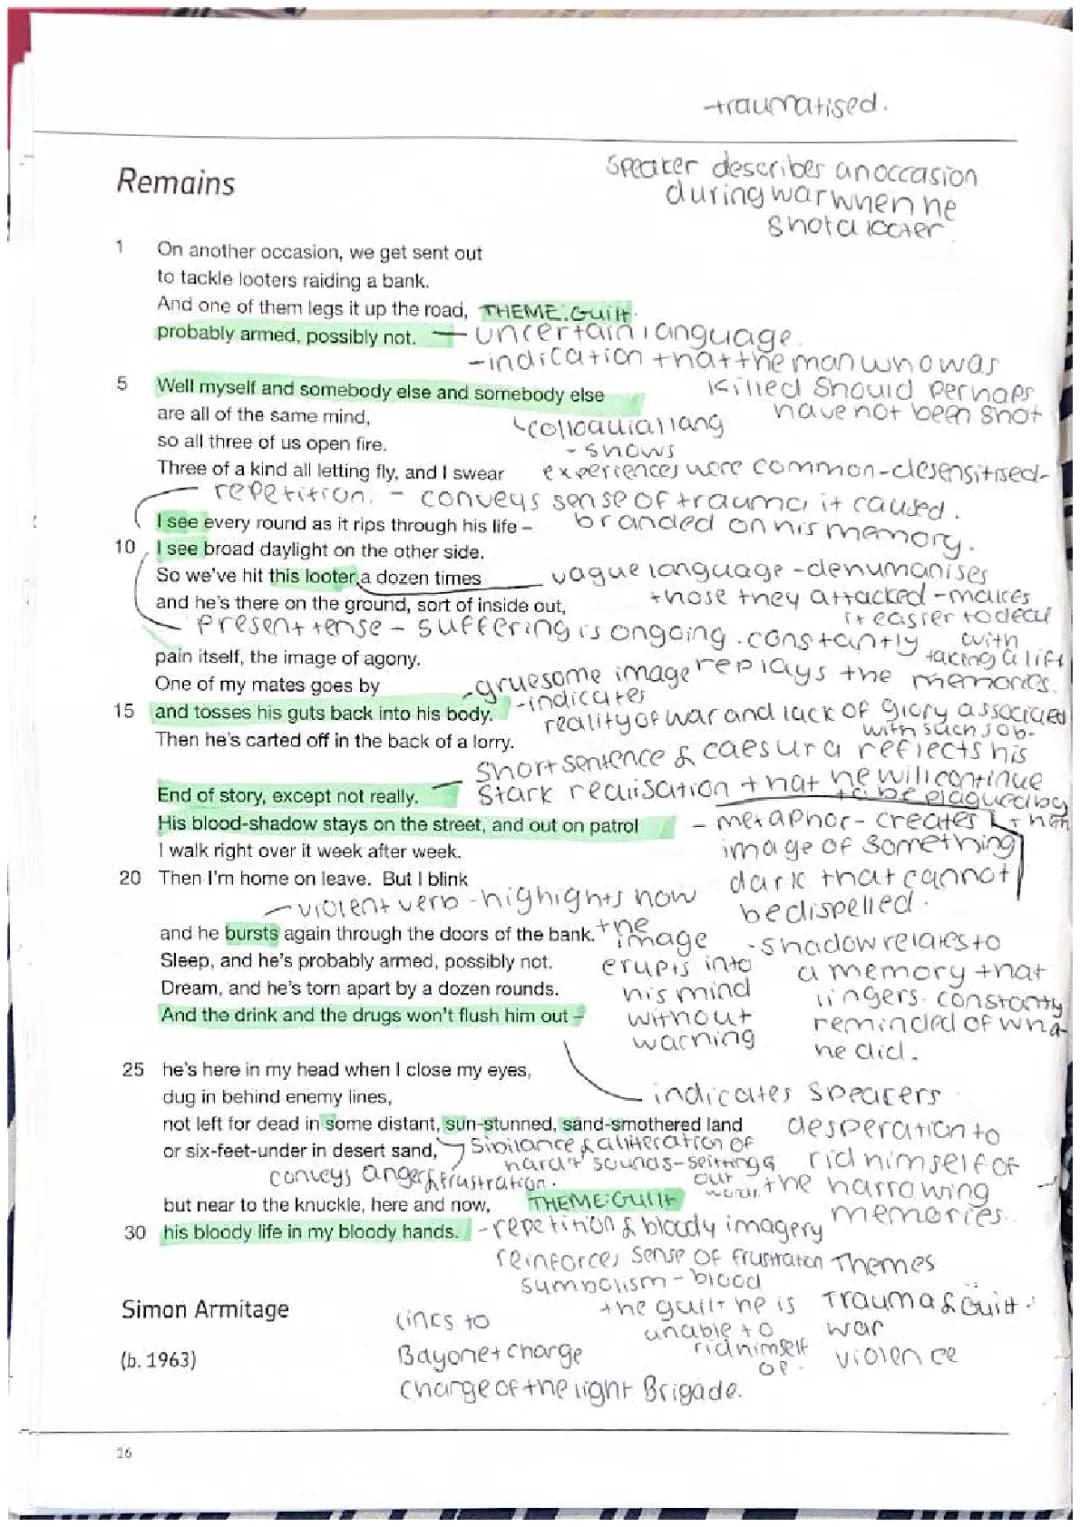 traumatised.
Remains
speaker describes an occasion
during war when he
shot a looter.
1 On another occasion, we get sent out
to tackle looters raiding a bank.
And one of them legs it up the road, THEME: Guilt
probably armed, possibly not. — uncertain language.
-indication that the man who was
killed should perhaps
have not been shot
5 Well myself and somebody else and somebody else
are all of the same mind,
colloquial lang
so all three of us open fire.
- shows
Three of a kind all letting fly, and I swear
experiences were common-desensitised-
repetition. - conveys sense of trauma it caused.
I see every round as it rips through his life –
branded on his memory.
10 I see broad daylight on the other side.
So we've hit this looter a dozen times
vague language - dehumanises
those they attacked - makes
it easier to deal
with
taking a life
and he's there on the ground, sort of inside out,
present tense - suffering is ongoing. constantly
replays the memories.
pain itself, the image of agony.
One of my mates goes by
-gruesome image
-indicates
15 and tosses his guts back into his body.
reality of war and lack of glory associated
with such job.
Then he's carted off in the back of a lorry.
short sentence & caesura reflects his
stark realisation that he will continue
to be plagued by
End of story, except not really.
His blood-shadow stays on the street, and out on patrol
- metaphor - creates
image of something
dark that cannot
be dispelled.
I walk right over it week after week.
20 Then I'm home on leave. But I blink
violent verb - highights now
the
image
erupts into
his mind
without
warning
and he bursts again through the doors of the bank.
-shadow relates to
a memory that
lingers. constantly
reminded of wha
he did.
Sleep, and he's probably armed, possibly not.
Dream, and he's torn apart by a dozen rounds.
And the drink and the drugs won't flush him out –
indicates speakers
desperation to
rid himself of
the harrowing
memories.
25 he's here in my head when I close my eyes,
dug in behind enemy lines,
not left for dead in some distant, sun-stunned, sand-smothered land
or six-feet-under in desert sand,
Sibilance & alliteration of
hard t sounds-spitting
out
words.
conveys anger & frustration.
but near to the knuckle, here and now,
THEME: Guilt
30 his bloody life in my bloody hands.
-repetition & bloody imagery
reinforces sense of frustration
symbolism - blood
the guilt he is
unable to
rid himself
of.
Themes
Trauma & Guilt
war
violence
Simon Armitage
(b. 1963)
Lincs to
Bayonet charge
Charge of the light Brigade.
16